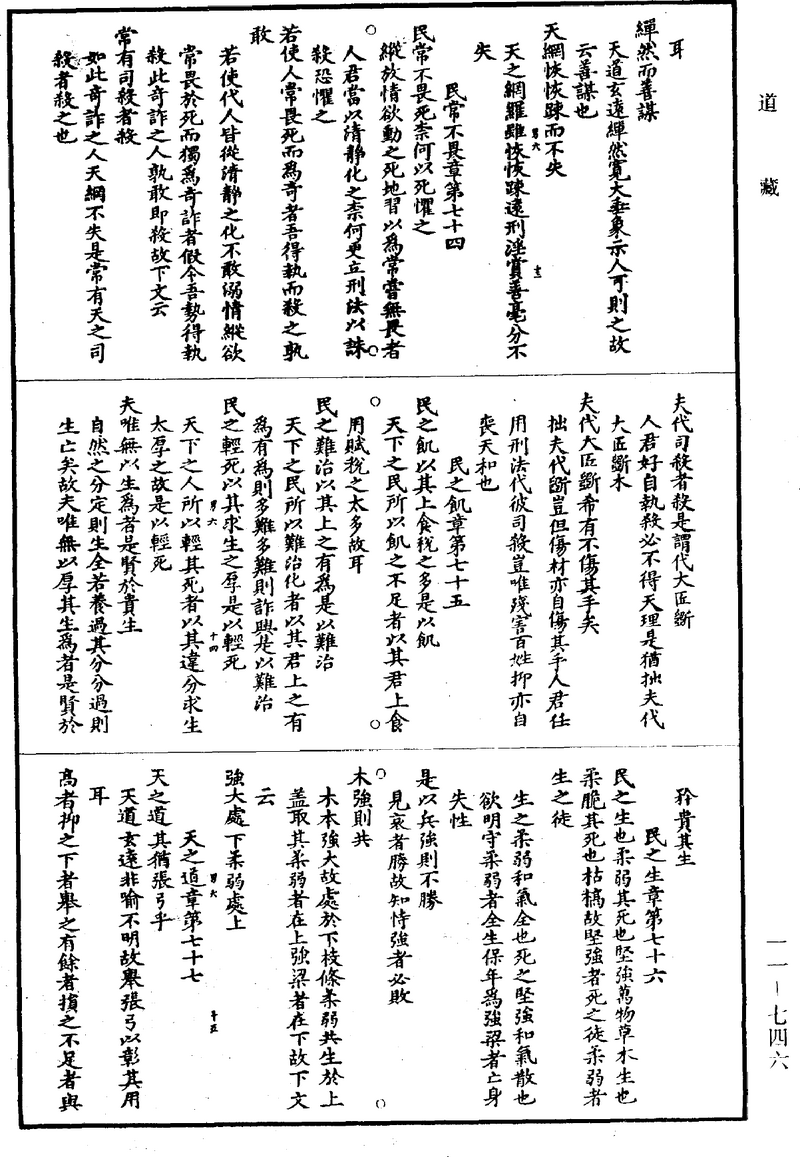 道藏
耳
繟然而善謀
天道玄遠繟然寬大垂象示人可則之故
云善謀也
天網恢恢踈而不失
天之網羅雖恢恢踈遠刑淫賞善毫分不
失
民常不畏章第七十四
民常不畏死柰何以死懼之
縱放情欲動之死地習以為常嘗無畏者
人君當以清靜化之柰何更立刑法以誅
殺恐懼之
若使人常畏死而為奇者吾得執而殺之孰
敢
若使代人皆從清靜之化不敢溺情縱欲
常畏於死而獨為奇詐者假令吾勢得執
殺此奇詐之人孰敢即殺故下文云
常有司殺者殺
如此奇詐之人天網不失是常有天之司
殺者殺之也
夫代司殺者殺是謂代大匠斲
人君好自執殺必不得天理是猶拙夫代
大匠斲木
夫代大匠斲希有不傷其手矣
拙夫代斲豈但傷材亦自傷其手人君任
用刑法代彼司殺豈唯殘害百姓抑亦自
喪天和也
民之飢章第七十五
民之飢以其上食稅之多是以飢
天下之民所以飢之不足者以其君上食
用賦稅之太多故耳
民之難治以其上之有為是以難治
天下之民所以難治化者以其君上之有
為有為則多難多難則詐興是以難治
民之輕死以其求生之厚是以輕死
天下之人所以輕其死者以其違分求生
太厚之故是以輕死
夫唯無以生為者是賢於貴生
自然之分定則生全若養過其分分過則
生亡矣故夫唯無以厚其生為者是賢於
矜貴其生
民之生章第七十六
民之生也柔弱其死也堅強萬物草木生也
柔脆其死也枯槁故堅強者死之徒柔弱者
生之徒
生之柔弱和氣全也死之堅強和氣散也
欲明守柔弱者全生保年為強梁者亡身
失性
是以兵強則不勝
見哀者勝故知恃強者必敗
木強則共
木本強大故處於下枝條柔弱共生於上
蓋取其柔弱者在上強梁者在下故下文
云
強大處下柔弱處上
天之道章第七十七
天之道其猶張弓乎
天道玄遠非喻不明故舉張弓以彰其用
耳
高者抑之下者舉之有餘者損之不足者與
一一－七四六